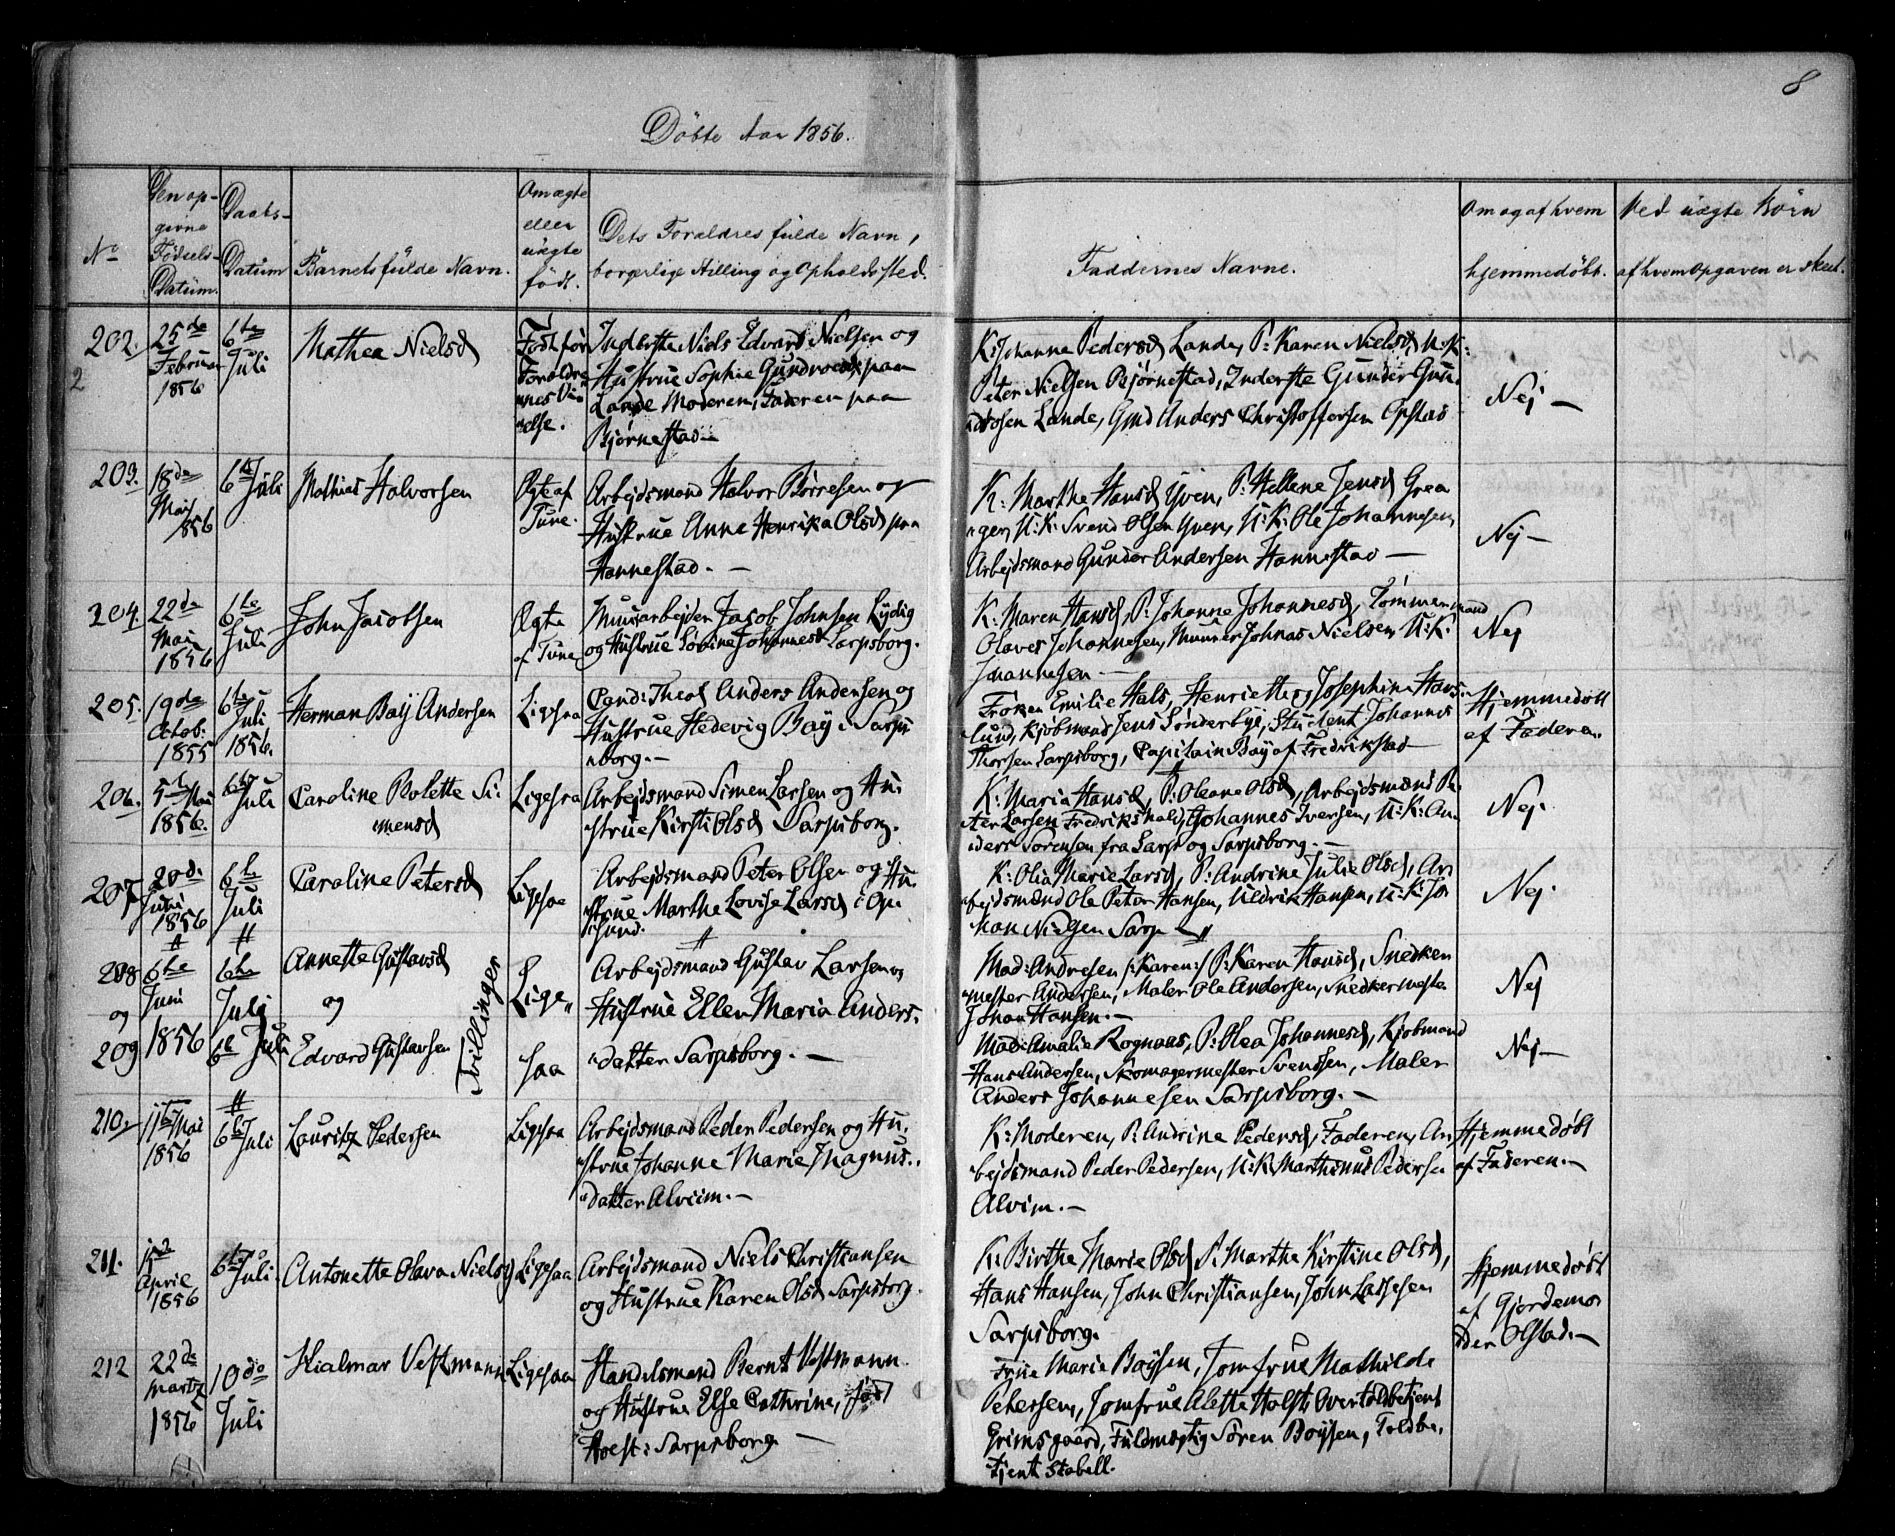 8
Döbte Aar 1856.
No
Den op-
givne
Födsels-
Datum.
Daabs-
Datum
Barnets fulde Navn.
Om ægte
eller
uægte
født.
Dets Forældres fulde Navn,
borgerlige Stilling og Opholdssted.
Faddernes Navne.
Om og af hvem
hjemmedøbt.
Ved uægte Børn
af hvem Opgaven er skeet.
202.
2
25de
Februar
1856
6te
Juli
Mathea Nielsd
Født før
Foreldre
nes Vi
else.
Inderste Niels Edvard Nielsen og
Hustrue Sophie Gundroesd paa
Lande Moderen, Faderen paa
Bjørnestad
K: Johanne Pedersd Lande, P: Karen Nielsd, U:K:
Peter Nielsen Bjørnestad, Inderste Gunder Gun
drosen Lande, Gmd Anders Christoffersen Opstad
Nej —
203.
18de
Mai
1856
6te Juli
Mathias Halvorsen
Ægte af
Tune.
Arbejdsmand Halvor Børresen og
Hustrue Anne Henrika Olsd paa
Hannestad. —
K: Marthe Hansd Yven, P: Hellene Jensd Grea
ger, U:K: Svend Olsen Yven, U:K: Ole Johannesen,
Arbejdsmand Gunder Andersen Hannestad —
Nej —
204.
22de
Mai
1856
6te
Juli
John Jacobsen
Ægte
af Tune
Muurarbejder Jacob Johnsen Lydig
og Hustrue Lovine Johannesd Sarpsborg.
K: Maren Hansd P: Johanne Johannesd, Tømmermand
Olaves Johannesen, Muurer Johnas Nielsen, U:K:
Johannesen —
Nej
205.
19de
Octob:
1855
6te
Juli
1856.
Herman Baÿ Andersen
Ligesaa
Cand: Theol Anders Andersen og
Hustrue Hedevig Baÿ i Sarps
borg. —
Frøken Emilie Hals, Henriette og Josephine Has
lund, Kjøbmand Jens Sonderbye, Student Johannes
Thorsen Sarpsborg, Capitain Baÿ af Fredrikstad —
Hjemmedøbt
af Faderen.
206.
5te Mai
1856.
6te
Juli
Caroline Bolette Si
mensd
Ligesaa
Arbejdsmand Simen Larsen og Hu
strue Kirsti Olsd Sarpsborg.
K: Maria Hansd, P: Oleane Olsd, Arbejdsmænd Pe
ter Larsen Fredrikshald, Johannes Iversen, U:K: An
ders Sørensen fra Sarp og Sarpsborg. —
Nej.
207.
20de
Juni
1856
6te
Juli
Caroline Petersd
Ligesaa
Arbejdsmand Peter Olsen og Hu
strue Marthe Lovise Larsd i Op
sund.
K: Olia Marie Larsd, P: Andrine Julie Olsd, Ar
bejdsmænd Ole Peter Hansen, Uldrik Hansen, U:K: Jo
han Nielsen Sarp
Nej.
208
og
209
6te
Juni
1856
6te
Juli
6te Juli
Annette Gustavsd
og
Edvard Gustavsen
Tvillinger
Lige
saa
Arbejdsmand Gustav Larsen og
Hustrue Ellen Maria Anders
datter Sarpsborg. —
Mad: Andresen /: Karen :/ P: Karen Hansd, Snedker
mester Andersen, Maler Ole Andersen, Snedkermester
Johan Hansen. —
Nej
Mad: Amalie Rognaas, P: Olea Johannesd, Kjøbmand
Hans Andersen, Skomagermester Svenssen, Maler
Anders Johannesen Sarpsborg. —
Nej —
210.
11te Mai
1856
6te Juli
Lauritz Pedersen
Ligesaa
Arbejdsmand Peder Pedersen og Hu
strue Johanne Marie Magnus
datter Alviim. —
K: Moderen, P: Andrine Pedersd, Faderen, Ar
bejdsmand Peder Pedersen, U:K: Marthinus Pedersen
Alvim. —
Hjemmedøbt
af Faderen. —
211.
April
1856
6te Juli
Antonette Olava Nielsd
Ligesaa
Arbejdsmand Niels Christiansen
og Hustrue Karen Olsd Sarpsborg.
K: Birthe Marie Olsd P: Marthe Kirstine Olsd,
Hans Hansen, John Christiansen, John Lassesen
Sarpsborg.
Hjemmedøbt
af Gjordemo
der Olstad. —
212
22de
Martz
1856
10de
Juli
Hialmar Vestmann
Ligesaa
Handelsmand Bernt Vestmann
og Hustrue Else Cathrine, fød
Hoest: Sarpsborg —
Frue Marie Boÿsen, Jomfrue Mathilde
Petersen, Jomfrue Alette Holst, Overtoldbetjent
Grimsgaard, Fuldmægtig Sören Boÿsen, Toldbe
tjent Stabell.